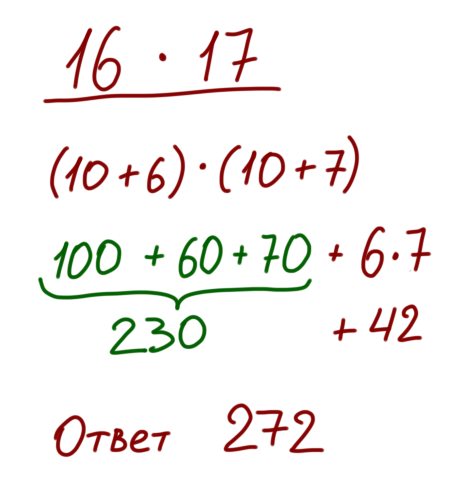 16 · 17
(10+6)·(10+7)
100 + 60 + 70 + 6·7
230 + 42
Ответ 272